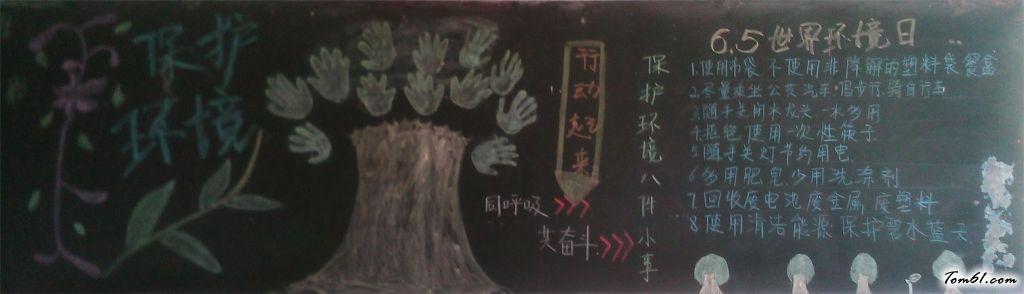 保护
环境
行动起来
同呼吸
共奋斗
保护环境八件小事
6.5世界环境日
1.使用布袋 不使用非降解的塑料袋餐盒
2.尽量乘坐公共汽车，马步行，骑自行车
3.随手关闭水龙头 一水多用
4.拒绝使用一次性筷子
5.随手关灯节约用电
6多用肥皂少用洗涤剂
7回收废电池废金属废塑料
8使用清洁能源 保护碧水蓝天
Tom61.com